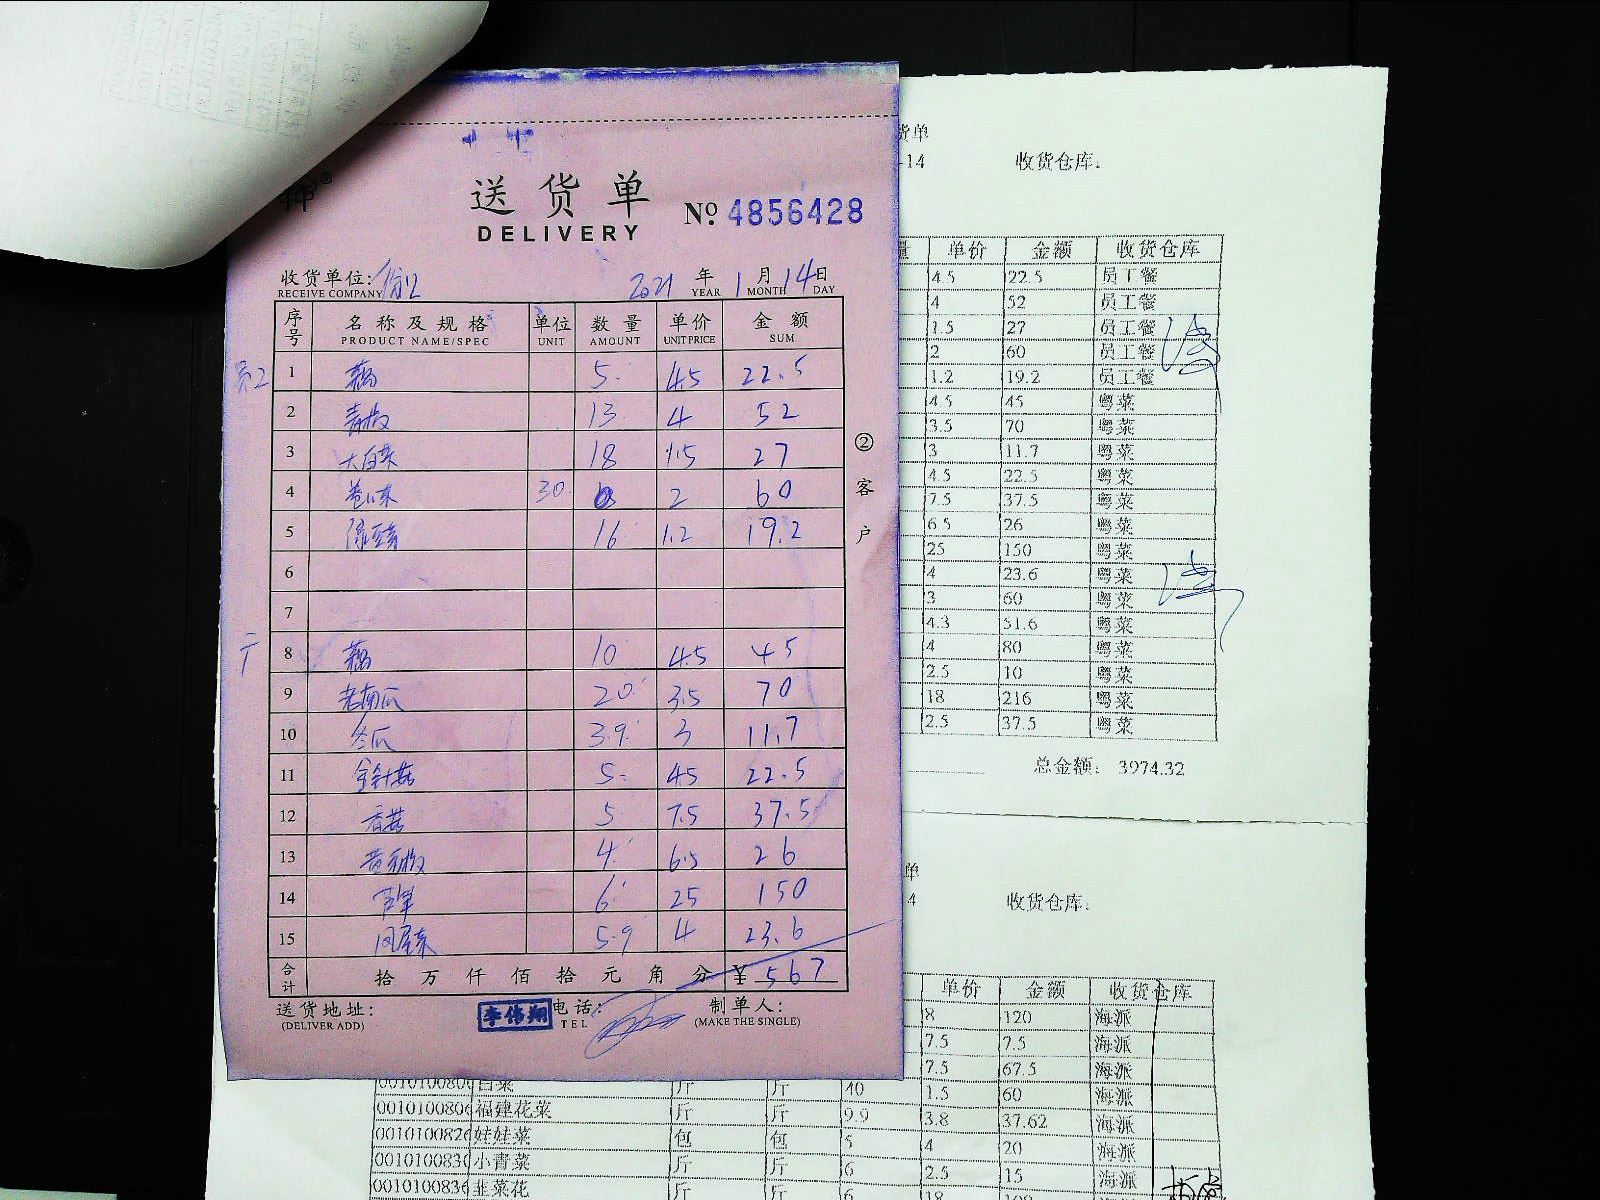 送货单
DELIVERY
№ 4856428
收货单位:
RECEIVE COMPANY
2021 年 1 月 14 日
YEAR MONTH DAY
序号 名称及规格 单位 数量 单价 金额
PRODUCT NAME/SPEC UNIT AMOUNT UNIT PRICE SUM
1 5 4.5 22.5
2 青椒 13 4 52
3 大白菜 18 1.5 27
4 30 2 60
5 16 1.2 19.2
6
7
8 10 4.5 45
9 老南瓜 20 3.5 70
10 冬瓜 3.9 3 11.7
11 金针菇 5 4.5 22.5
12 香菇 5 7.5 37.5
13 4 6.5 26
14 芦笋 6 25 150
15 5.9 4 23.6
合计 拾万仟佰拾元角分 ¥ 567
送货地址: 电话: 制单人:
(DELIVER ADD) TEL (MAKE THE SINGLE)
李伟翔
②客户
货单
-14 收货仓库:
量 单价 金额 收货仓库
4.5 22.5 员工餐
4 52 员工餐
1.5 27 员工餐
2 60 员工餐
1.2 19.2 员工餐
4.5 45 粤菜
3.5 70 粤菜
3 11.7 粤菜
4.5 22.5 粤菜
7.5 37.5 粤菜
6.5 26 粤菜
25 150 粤菜
4 23.6 粤菜
3 60 粤菜
4.3 51.6 粤菜
4 80 粤菜
2.5 10 粤菜
18 216 粤菜
2.5 37.5 粤菜
总金额: 3974.32
单
4 收货仓库:
单价 金额 收货仓库
8 120 海派
7.5 7.5 海派
7.5 67.5 海派
白菜 斤 斤 40 1.5 60 海派
福建花菜 斤 斤 9.9 3.8 37.62 海派
娃娃菜 包 包 5 4 20 海派
小青菜 斤 斤 6 2.5 15 海派
韭菜花 斤 斤 6 18 108